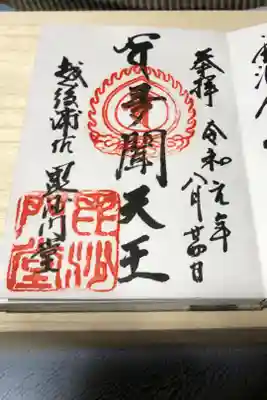 参拝 令和元年
八月廿四日
聞天王
越後浦佐 毘沙門堂
毘沙門堂